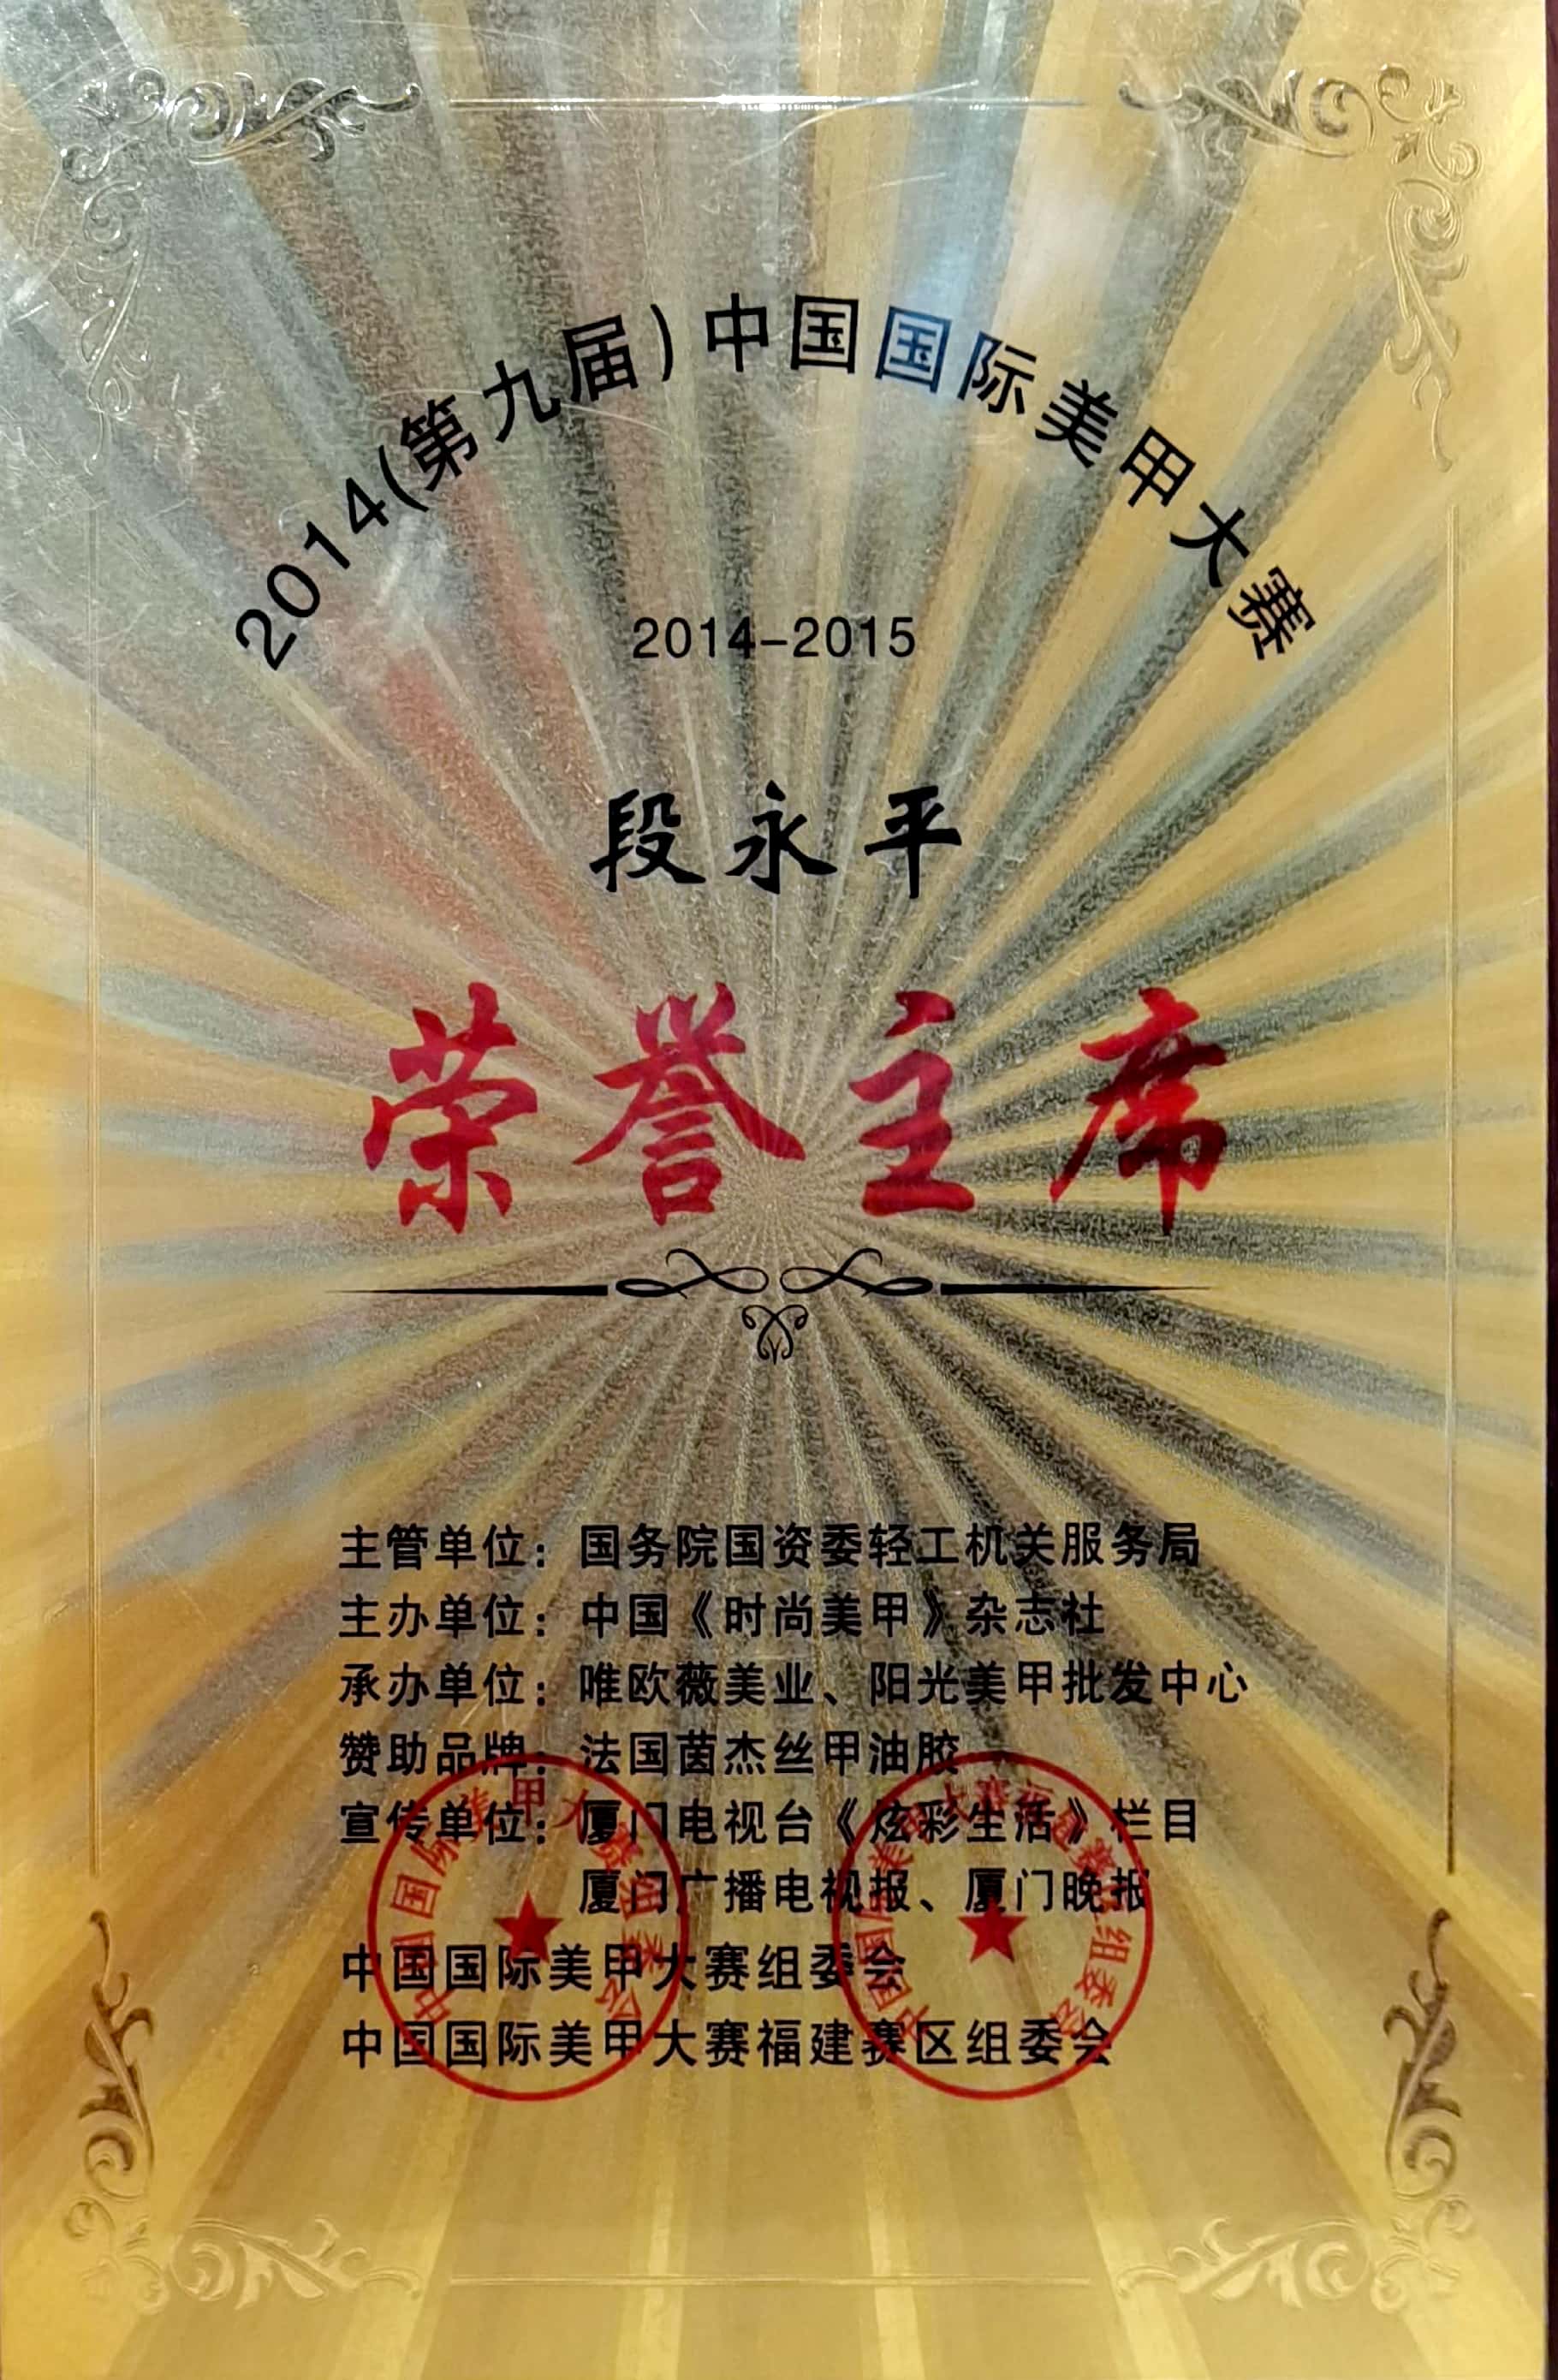 2014(第九届)中国国际美甲大赛
2014-2015
段永平
荣誉主席
主管单位：国务院国资委轻工机关服务局
主办单位：中国《时尚美甲》杂志社
承办单位：唯欧薇美业、阳光美甲批发中心
赞助品牌：法国茵杰丝甲油胶
宣传单位：厦门电视台《炫彩生活》栏目
厦门广播电视报、厦门晚报
中国国际美甲大赛组委会
中国国际美甲大赛福建赛区组委会
中国国际美甲大赛组委会